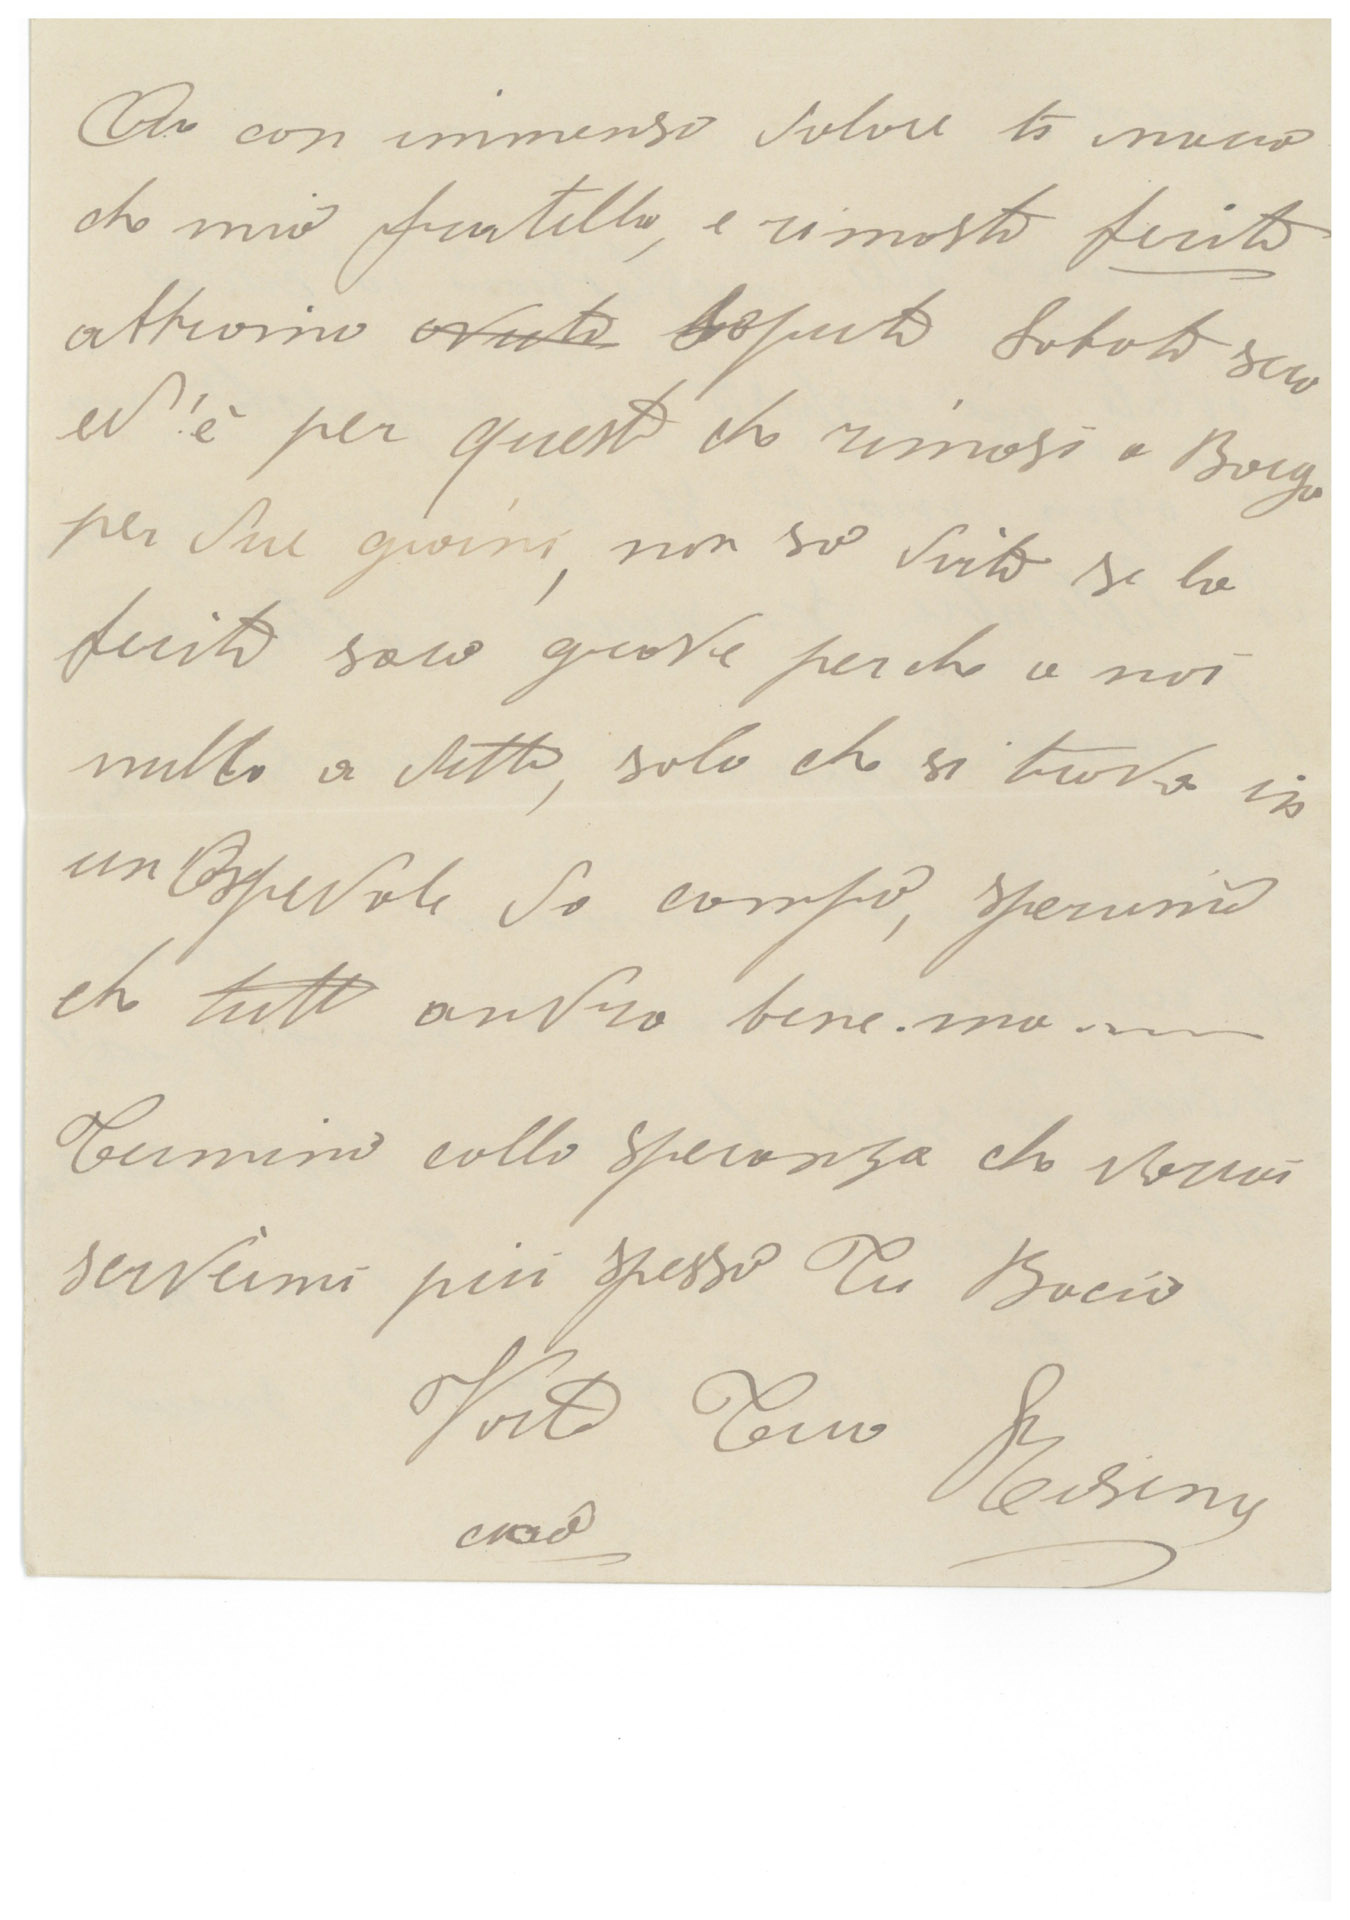 Ora con immenso dolore ti narro
che mio fratello, e rimasto ferito
attraino avuto saputo Sabato sera
ed'è per questo che rimasi a Borgo
per due giorni, non so dirti se la
ferita sara grave perche a noi
nulla a detto, solo che si trova in
un Ospedale da campo, speriamo
che tutto andra bene. ma
Termino colla speranza che vorrai
scrivermi più spesso Tu Bacio
Tuo
ciao